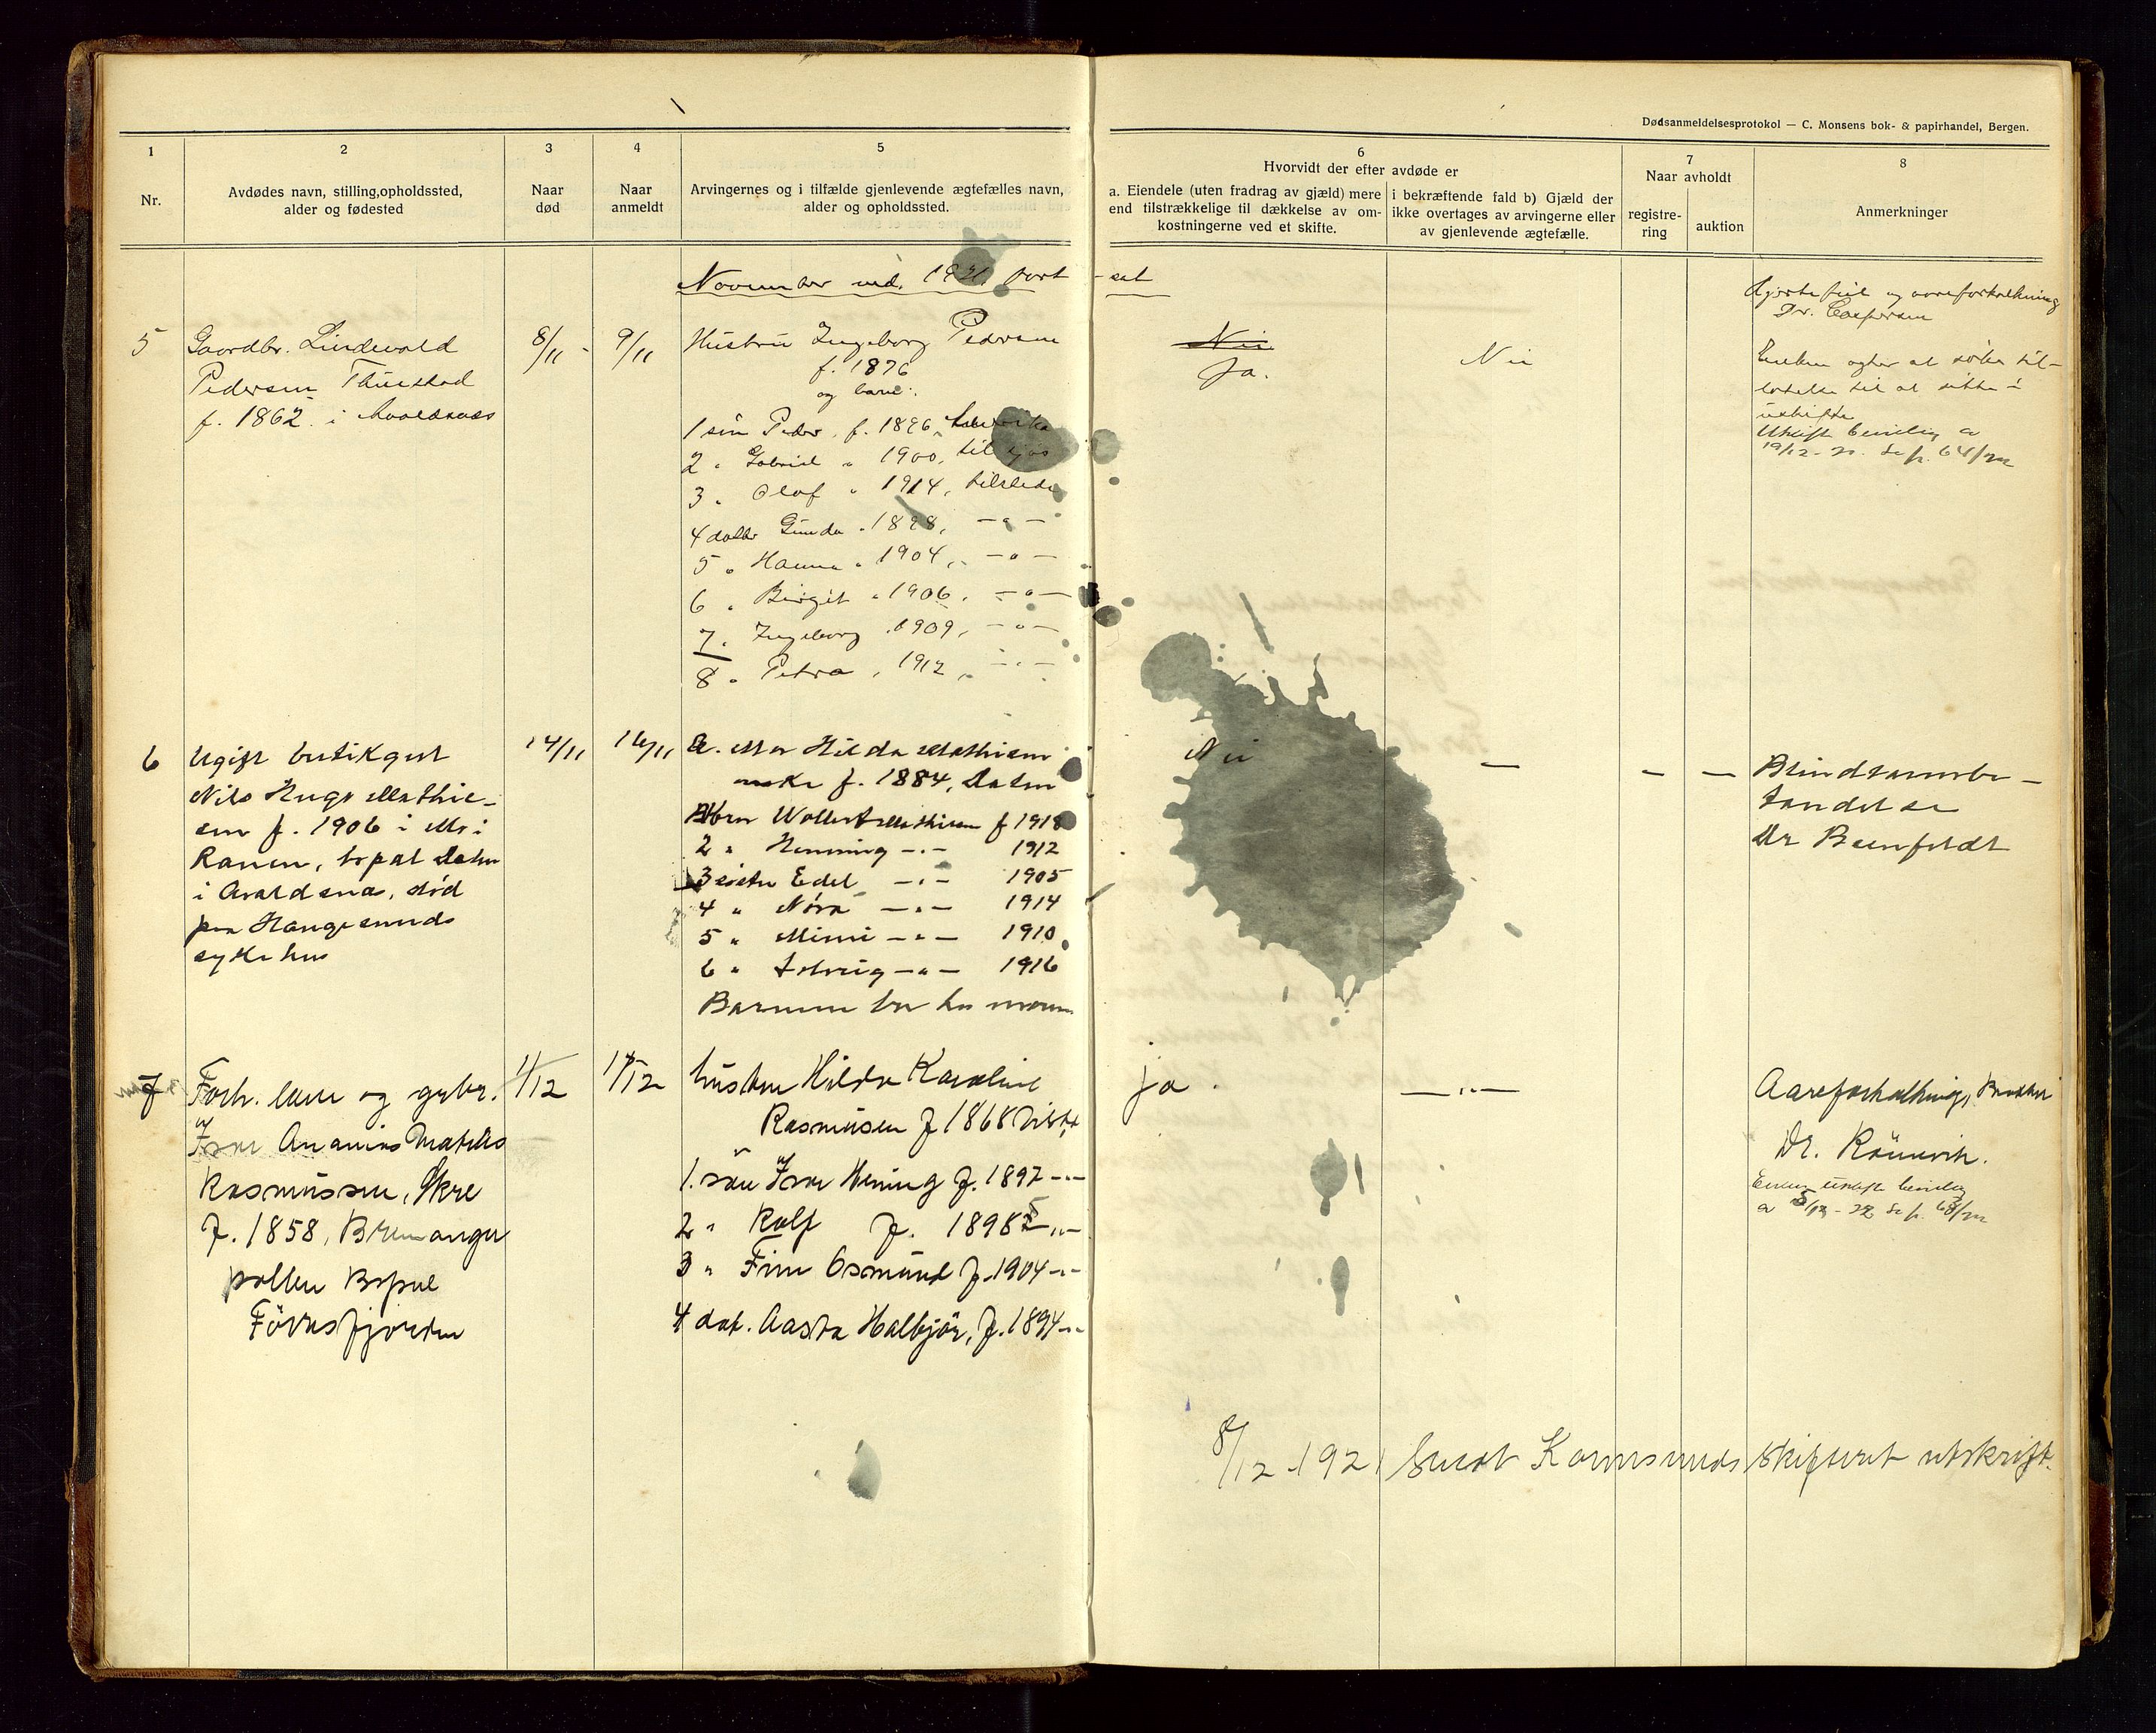 Dødsanmeldelsesprotokol — C. Monsens bok- & papirhandel, Bergen.
1
2
3
4
5
6
7
8
Nr.
Avdødes navn, stilling, opholdssted,
alder og fødested
Naar
død
Naar
anmeldt
Arvingernes og i tilfælde gjenlevende ægtefælles navn,
alder og opholdssted.
Hvorvidt der efter avdøde er
a. Eiendele (uten fradrag av gjæld) mere
end tilstrækkelige til dækkelse av om-
kostningerne ved et skifte.
i bekræftende fald b) Gjæld der
ikke overtages av arvingerne eller
av gjenlevende ægtefælle.
Naar avholdt
registre-
ring
auktion
Anmerkninger
November md. 1921 fort-sat
5
Gaardbr. Lindevald
Pedersen Thuestad
f. 1862 i Avaldsnes
8/11
9/11
Hustru Ingeborg Pedersen
f. 1876
og barn:
1 søn Peder f. 1896,
2 " Gabriel " 1900, til sjøs
3 " Olaf " 1914, tilstede
4 datter Gunda " 1898, — " —
5 " Hanna " 1904, — " —
6 " Birgit " 1906, — " —
7 " Ingeborg " 1909, — " —
8 " Petra " 1912, — " —
Nei
Ja.
Nei
Hjertefeil og aareforkalkning
Dr. Caspersen
Enken agter at søke til-
latelse til at sitte i
uskifte
Uskifte bevilling
19/12
6
Ugift butikgut
Nils Hugo Mathie-
sen f. 1906 i Mo i
Ranen, bopæl Dalen
i Avaldsnes, død
paa Haugesunds
sykehus
14/11
16/11
A. Mor Hilda Mathiesen
enke f. 1884, Dalen
B. 1 bror Wollert Mathiesen f 1918
2 " Henning — " — 1912
3 søster Edel — " — 1905
4 " Nora — " — 1914
5 " Mimi — " — 1910
6 " Solveig — " — 1916
Barnene bor hos moren
Nei
—
— —
Blindtarmbe-
tændelse
Dr Beenfeldt
7
Forh. lærer og grbr.
Isac Ananias Mathias
Rasmussen, Skre
f. 1858, Bremanger
pollen Bopæl
Førresfjorden
1/12
1/12
hustru Hilda Karoline
Rasmussen f 1868
1. søn Isac Hening f. 1892 — " —
2 " Rolf f. 1898 — " —
3 " Finn Osmund f. 1904 — " —
4 dat. Aasta Halbjør, f. 1894 — " —
ja.
— " —
Aareforkalkning,
Dr. Rönnevik.
Enken uskifte bevilling
8/12 - 1921 Sendt Karmsunds skifteret utskrift.